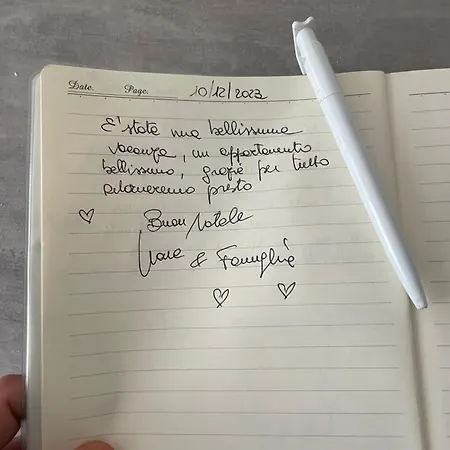 Date. Page. 10/12/2023
E' stata una bellissima
vacanza, un appartamento
bellissimo, grazie per tutto
ritorneremo presto
Buon Natale
& Famiglia